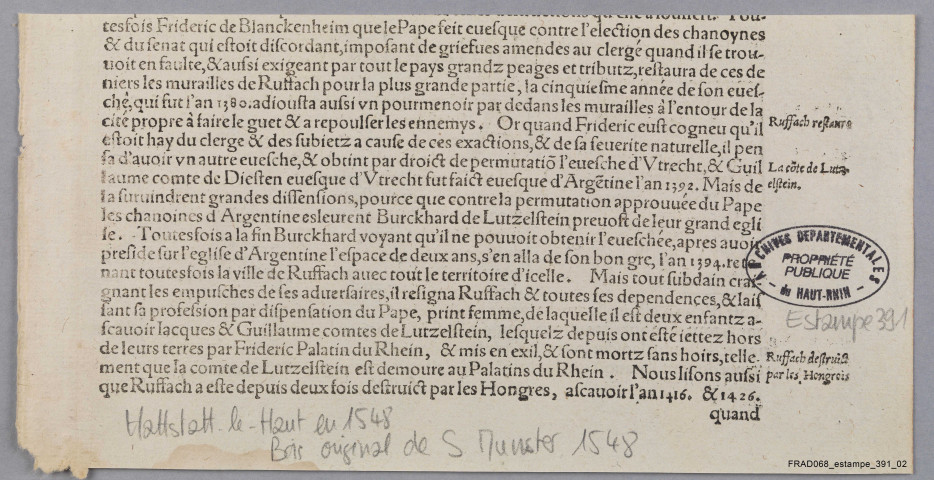 tesfois Frideric de Blanckenheim que le Pape feit euesque contre l'election des chanoynes
& du senat qui estoit discordant, imposant de griefues amendes au clergé quand il se trou-
uoit en faulte, & aussi exigeant par tout le pays grandz peages et tributz, restaura de ces de
niers les murailles de Ruffach pour la plus grande partie, la cinquiesme année de son eues-
ché, qui fut l'an 1380. adiousta aussi vn pourmenoir par dedans les murailles à l'entour de la
cité propre à faire le guet & a repoulser les ennemys. Or quand Frideric eust cogneu qu'il
estoit hay du clerge & des subietz a cause de ces exactions, & de sa seuerite naturelle, il pen
sa d'auoir vn autre euesche, & obtint par droict de permutatiõ l'euesche d'Vtrecht, & Guil
laume comte de Diesten euesque d'Vtrecht fut faict euesque d'Argẽtine l'an 1392. Mais de
la suruindrent grandes dissensions, pource que contre la permutation approuuée du Pape
les chanoines d'Argentine esleurent Burckhard de Lutzelstein preuost de leur grand egli
se. Toutesfois a la fin Burckhard voyant qu'il ne pouuoit obtenir l'eueschée, apres auoir
preside sur l'eglise d'Argentine l'espace de deux ans, s'en alla de son bon gre, l'an 1394. rete
nant toutesfois la ville de Ruffach auec tout le territoire d'icelle. Mais tout subdain crai
gnant les empusches de ses aduersaires, il resigna Ruffach & toutes ses dependences, & lais
sant sa profession par dispensation du Pape, print femme, de laquelle il est deux enfantz a-
scauoir Iacques & Guillaume comtes de Lutzelstein, lesquelz depuis ont esté iettez hors
de leurs terres par Frideric Palatin du Rhein, & mis en exil, & sont mortz sans hoirs, telle-
ment que la comte de Lutzelstein est demoure au Palatins du Rhein. Nous lisons aussi
que Ruffach a este depuis deux fois destruict par les Hongres, ascauoir l'an 1416. & 1426.
quand
Ruffach restaure
La cõte de Lutz-
elstein.
ARCHIVES DEPARTEMENTALES
PROPRIÉTÉ
PUBLIQUE
- du HAUT-RHIN -
Estampe 391
Ruffach destruict
par les Hongrois
Hattstatt-le-Haut en 1548
Bois original de S Munster 1548
FRAD068_estampe_391_02